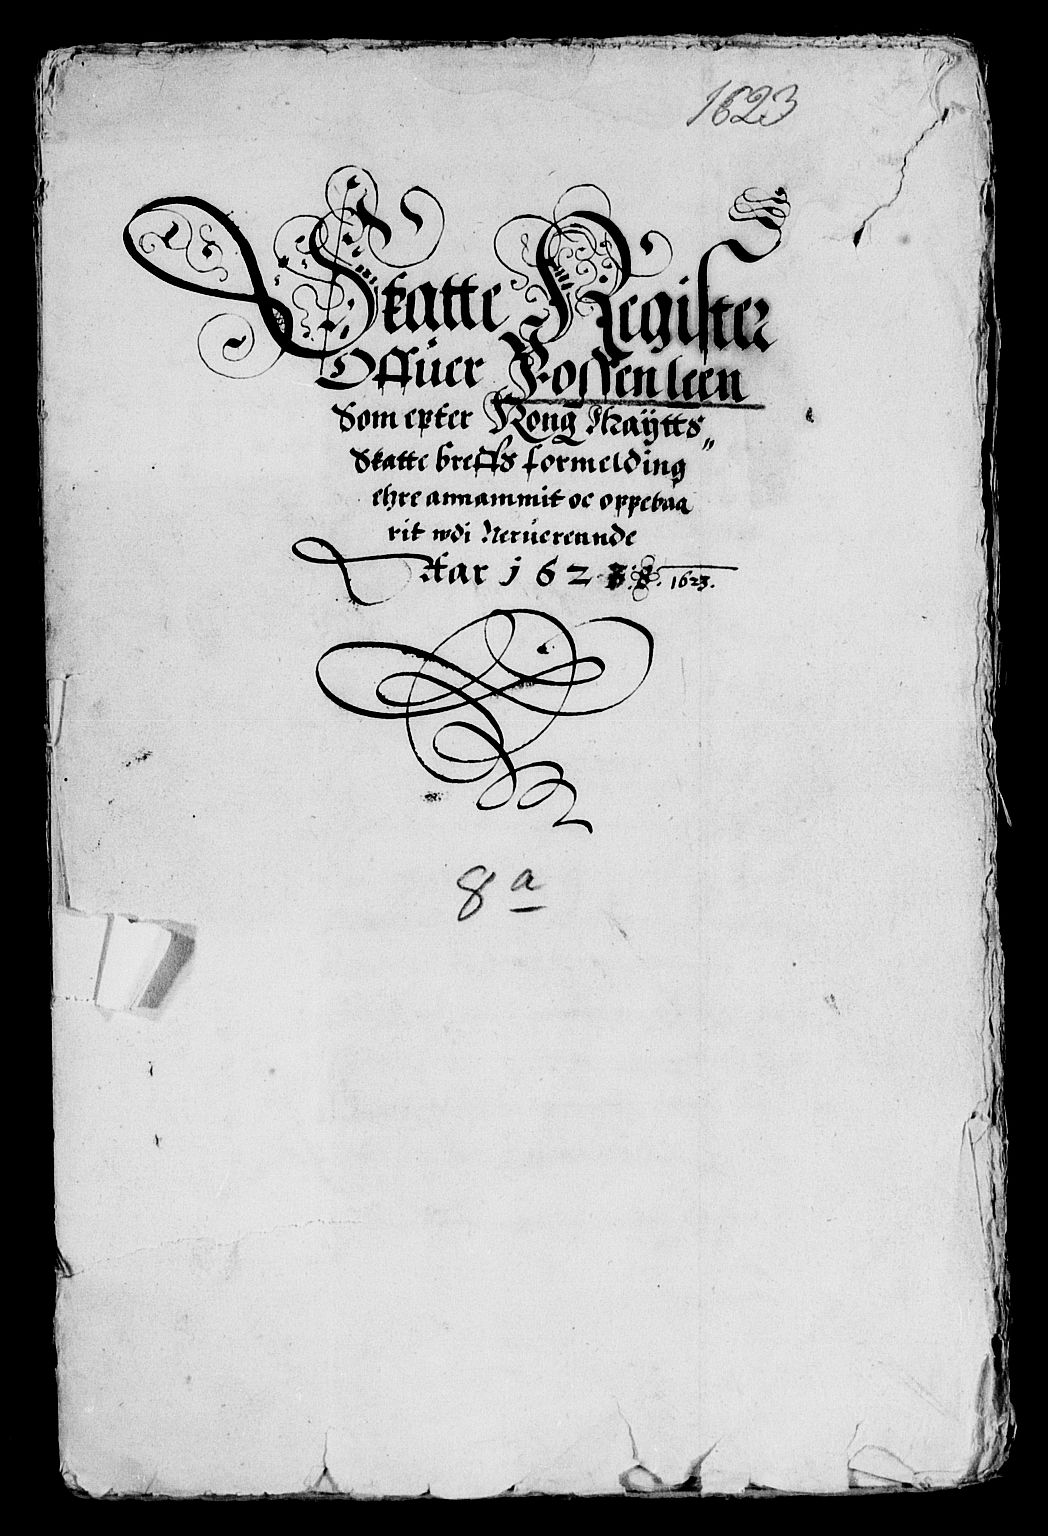 1623
Skatte Register
Offuer Possen leen
Som epter Kong Maÿtts
Skatte breffs formelding
ehre annammit oc oppebaa
rit wdi Neruerennde
Aar 1623. 1623.
8 a